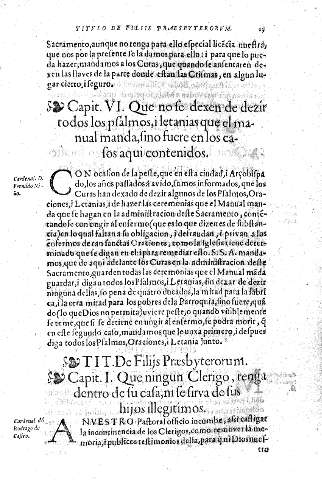 TITVLO DE FILIIS PRAESBYTERORVM. 29
Sacramento, aunque no tenga para ello especial licẽcia nuestra,
que nos por la presente se la damos para ello, i para que lo pue-
da hazer, mandamos a los Curas, que quando se ausentaren de-
xen las llaves de la parte donde estan las Crismas, en algun lu-
gar cierto, i seguro.
Capit. VI. Que no se dexen de dezir
todos los psalmos, i letanias que el ma-
nual manda, sino fuere en los ca-
sos aqui contenidos.
Cardenal D.
Fernãdo Ni-
ño.
CON ocasion de la peste, que en esta ciudad, i Arçobispa-
do, los años passados à avido, somos informados, que los
Curas han dexado de dezir algunos de los Psalmos, Ora-
ciones, i Letanias, i de hazer las ceremonias que el Manual man-
da que se hagan en la administracion deste Sacramento, conten-
tãdose con ungir al enfermo (que es lo que dizen de substan-
cia) en lo qual faltan a su obligacion, i defraudan, i privan a los
enfermos de tan sanctas Oraciones, como la Iglesia tiene deter-
minado que se digan en el: i para remediar esto. S. S. A. manda-
mos, que de aqui adelante los Curas en la administracion deste
Sacramento, guarden todas las ceremonias que el Manual mãda
guardar, i digan todos los Psalmos, i Letanias, sin dexar de dezir
ninguna dellas, so pena de quatro ducados, la mitad para la fabri-
ca, i la otra mitad para los pobres de la Parroquia, sino fuere, quã
do (lo que Dios no permita) uviere peste, o quando visiblemente
se teme, que si se detiene en ungir al enfermo, se podra morir, q̃
en este segundo caso, mandamos que le unxa primero, i despues
diga todos los Psalmos, Oraciones, i Letanias junto.
TIT. De Filijs Præsbyterorum.
Capit. I. Que ningun Clerigo, tenga
dentro de su casa, ni se sirva de sus
hijos illegitimos.
Cardenal dõ
Rodrigo de
Castro.
A NVESTRO Pastoral officio incumbe, assi castigar
la incontinencia de los Clerigos, como remover la me-
moria, i publicos testimonios della, para q̃ ni Dios nues-
tro